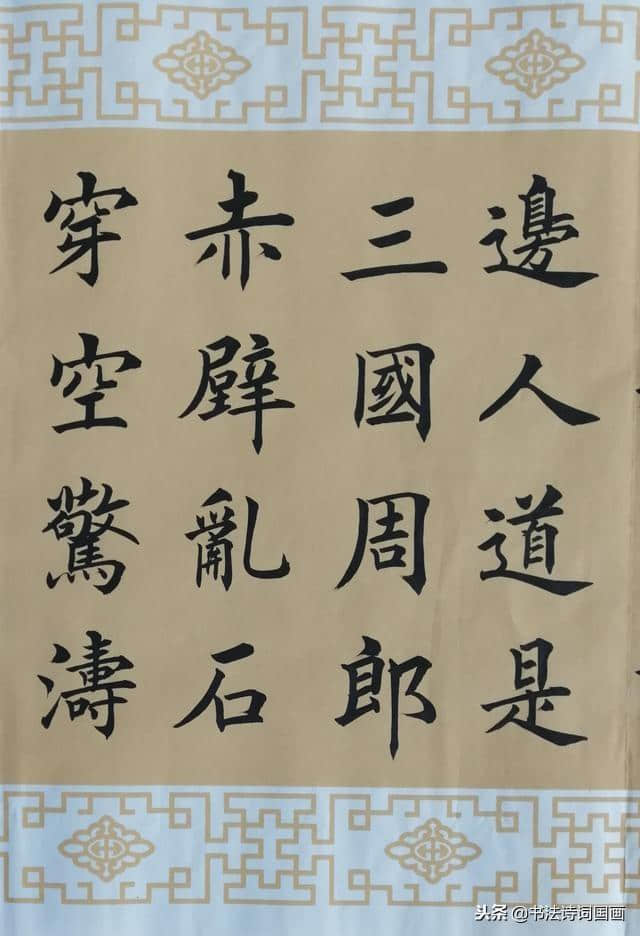 邊人道是
三國周郎
赤壁亂石
穿空驚濤
头条@书法诗词国画